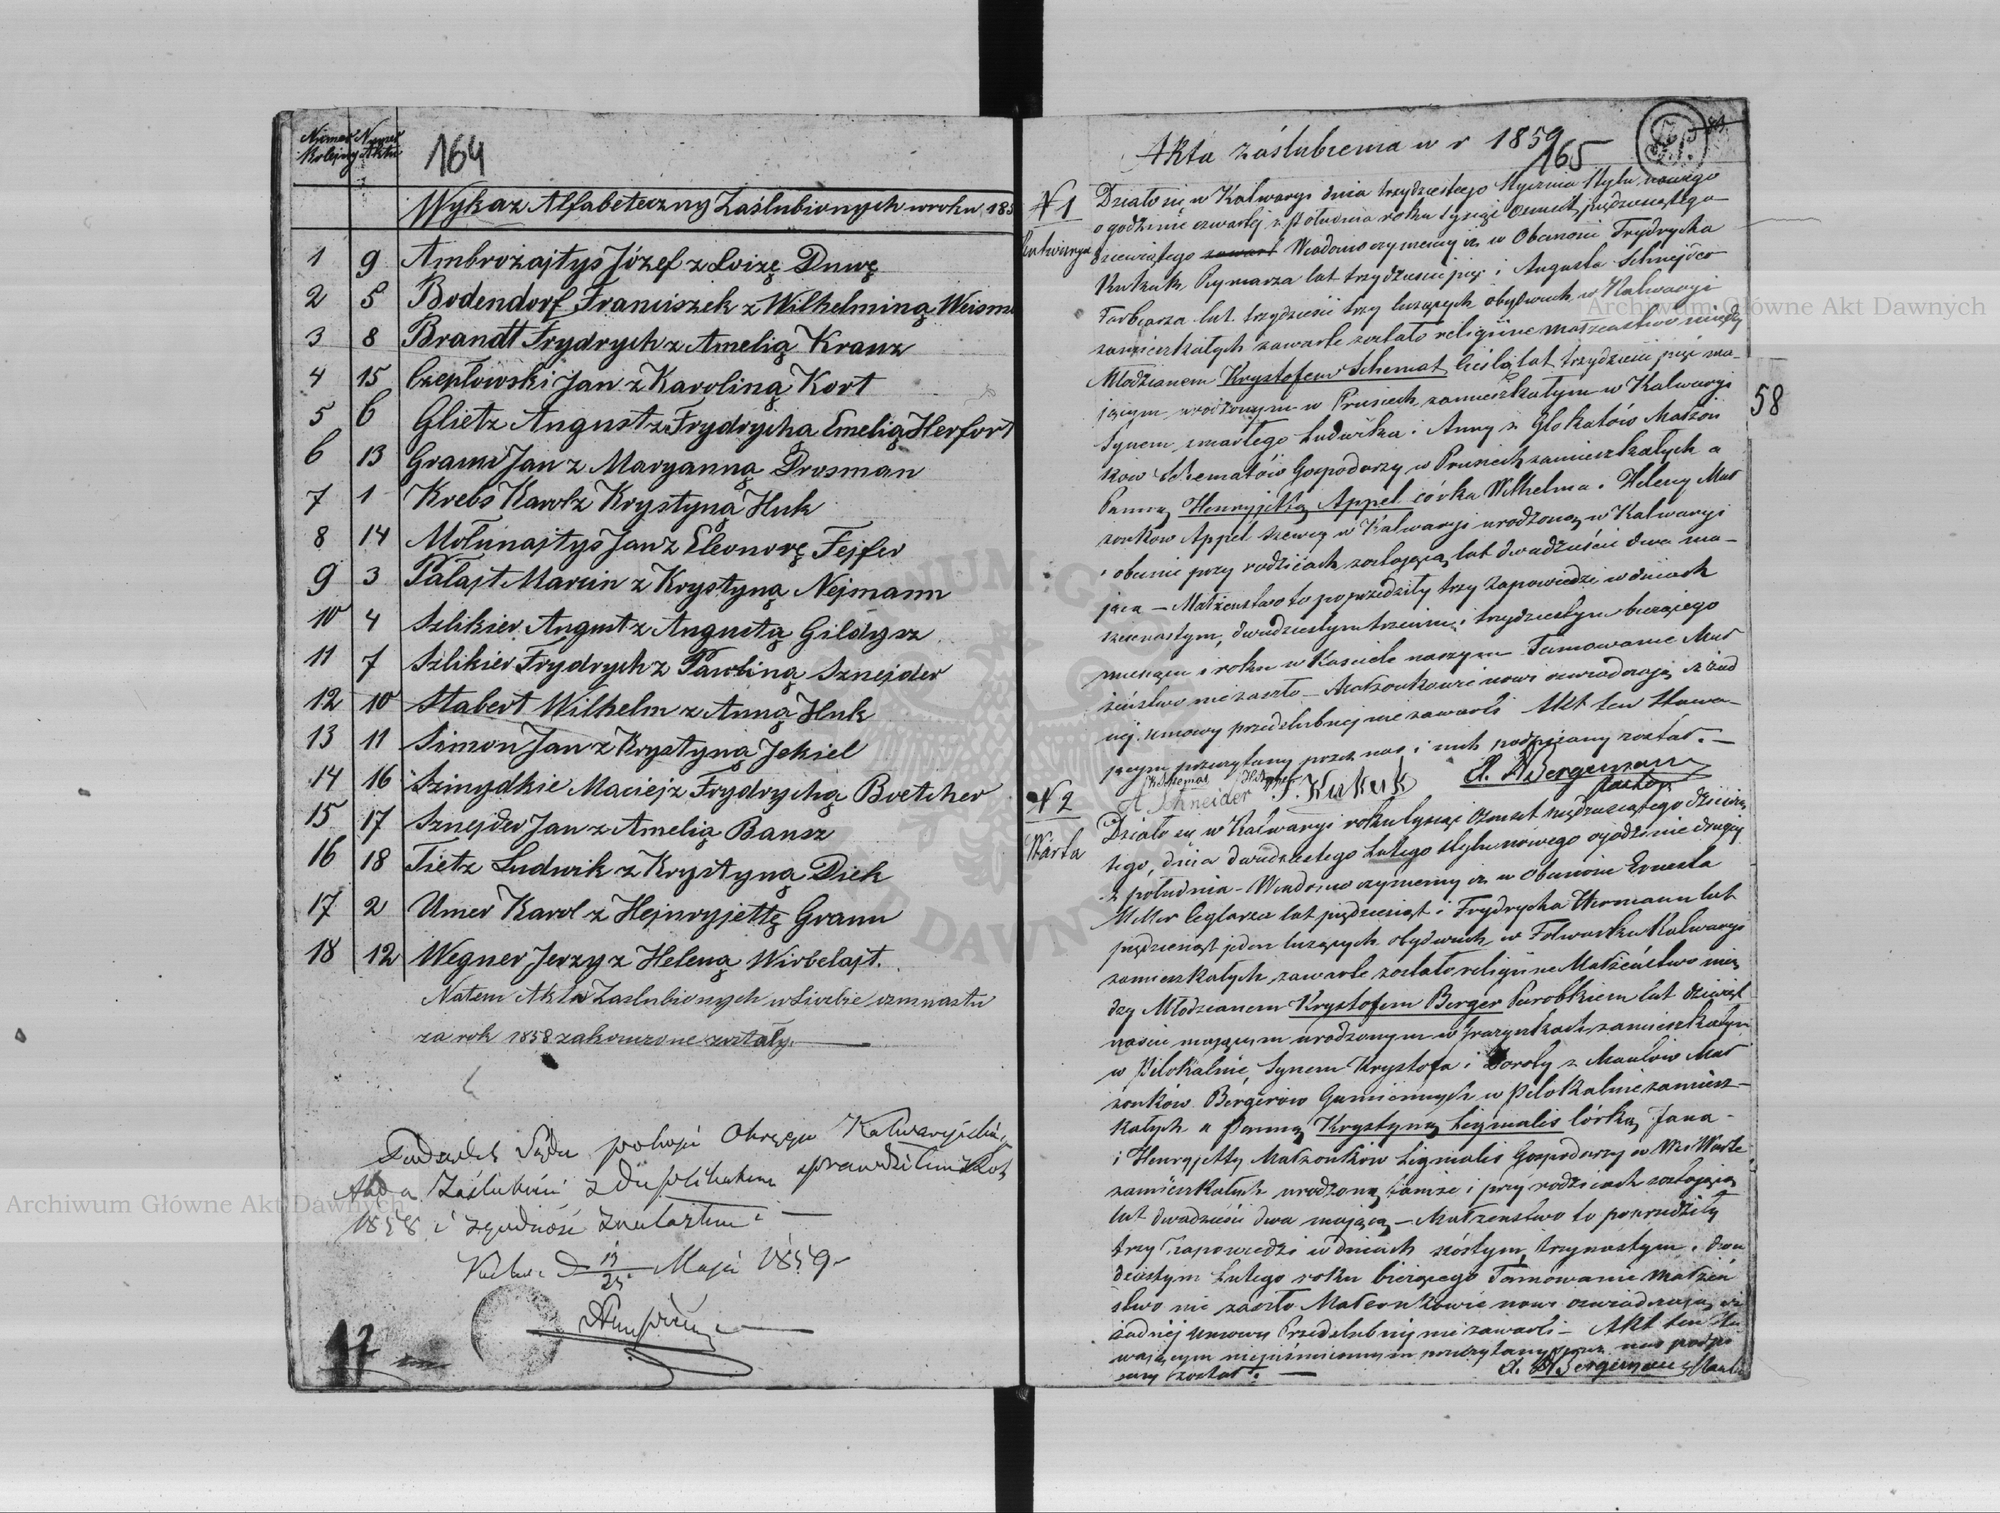 Numer Numer
Kolejny Aktu
164
Wykaz Alfabeteczny Zaślubionych w roku 185
1 9 Ambrożajtys Józef z Loizę Duwę
2 5 Bodendorf Franciszek z Wilhelminą Weisma
3 8 Brandt Frydrych z Amelią Kranz
4 15 Czepłowski Jan z Karoliną Kort
5 6 Glietz August z Frydrycha Emelią Herfort
6 13 Gramm Jan z Maryanną Drosman
7 1 Krebs Karol z Krystyną Huk
8 14 Mołunajtys Jan z Eleonorę Fejfer
9 3 Palajt Marcin z Krystyną Nejmann
10 4 Szlikier August z Augustą Gildysz
11 7 Szlikier Frydrych z Pauliną Sznejder
12 10 Stabert Wilhelm z Anną Huk
13 11 Simon Jan z Krystyną Jekiel
14 16 Szmydkie Maciej z Frydrychą Boetcher
15 17 Sznejder Jan z Amelią Bansz
16 18 Tietz Ludwik z Krystyną Dick
17 2 Umer Karol z Hejnryjettę Gramm
18 12 Wegner Jerzy z Heleną Wirbelajt.
Natem Akta Zaslubionych w Liczbie ozmnastu
za rok 1858 zakonczone zostały.
Podsędek Sądu pokoju Okręgu Kalwaryjskiego
Akta Zaślubień z Duplikatem sprawdziłem z Rok
1858 i zgodność znalazłem
Kalw. D 13/25 Maja 1859
17
Akta zaślubienia w r 1859
165
58
N 1
Kalwarya
Działo się w Kalwaryi dnia trzydziestego Stycznia Stylu nowego
o godzinie czwartej z południa roku tysiąc Osmset pięćdziesiątego
dziewiątego Wiadomo czyniemy iż w Obecności Frydrycha
Kukuk Rymarza lat trzydzieści pięć i Augusta Schnejder
Farbiarza lat trzydzieści trzy liczących obydwuch w Kalwaryi
zamieszkałych zawarte zostało religijne małżeństwo między
Młodzianem Krystofem Schemat Cieślą lat trzydzieści pięć ma-
jącym urodzonym w Prusiech zamieszkałym w Kalwaryi
Synem zmarłego Ludwika i Anny z Glokatów Małżon
kow Schematów Gospodarzy w Prusiech zamieszkałych a
Panną Henryjettą Appel córka Wilhelma i Heleny Mał
zonkow Appel Szewcy w Kalwaryi urodzoną w Kalwaryi
i obecnie przy rodzicach zostającą lat dwadzieścia dwa ma-
jąca — Małżeństwo to poprzedziły trzy Zapowiedzi w dniach
szesnastym, dwudziestym trzecim i trzydziestym bieżącego
miesiąca i roku w Kościele naszym Tamowanie Mał
żeństwo nie zaszło — Małżonkowie nowi oswiadczają iż żad
nej umowy przedslubnej nie zawarli Akt ten Stawa-
jącym przeczytany przez nas i nich podpisany został. —
K. Schemat H. Appel
A. Schneider F. Kukuk A. Bergemann
Pastor
N 2
Warta
Działo się w Kalwaryi roku tysiąc Ozmset pięćdziesiątego dziewią
tego, dnia dwudziestego Lutego stylu nowego o godzinie drugiej
z południa — Wiadomo czyniemy iż w obecnosci Ernesta
Meller Ceglarza lat pięćdziesiąt i Frydrycha Hermann lat
pięćdziesiąt jeden liczących obydwuch w Folwarku Kalwarya
zamieszkałych, zawarte zostało religijne Małżeństwo mię
dzy Młodzianem Krystofem Berger Parobkiem lat dziewięt
naście mającym urodzonym w zamieszkałym
w Pilokalnie Synem Krystofa i Doroty z Mał
żonków Bergerów w Pilokalnie zamiesz-
kałych a Panną Krystyną Ligmalis Córką Jana-
i Henryjetty Małżonków Ligmalis Gospodarzy w Wsi Warte
zamieszkałych urodzoną tamże i przy rodzicach zostającą
lat dwadzieścia dwa mającą — Małżenstwo to poprzedziły
trzy Zapowiedzi w dniach szóstym, trzynastym i dwu
dziestym Lutego roku bieżącego Tamowanie małżeń
stwo nie zaszło Małżonkowie nowi oswiadczają iż
żadnej umowy Przedslubnej nie zawarli — Akt ten Sta
wającym niepiśmiennym przeczytany przez nas podpi
sany został. — A. Bergemann Pastor
Archiwum Główne Akt Dawnych
Archiwum Główne Akt Dawnych